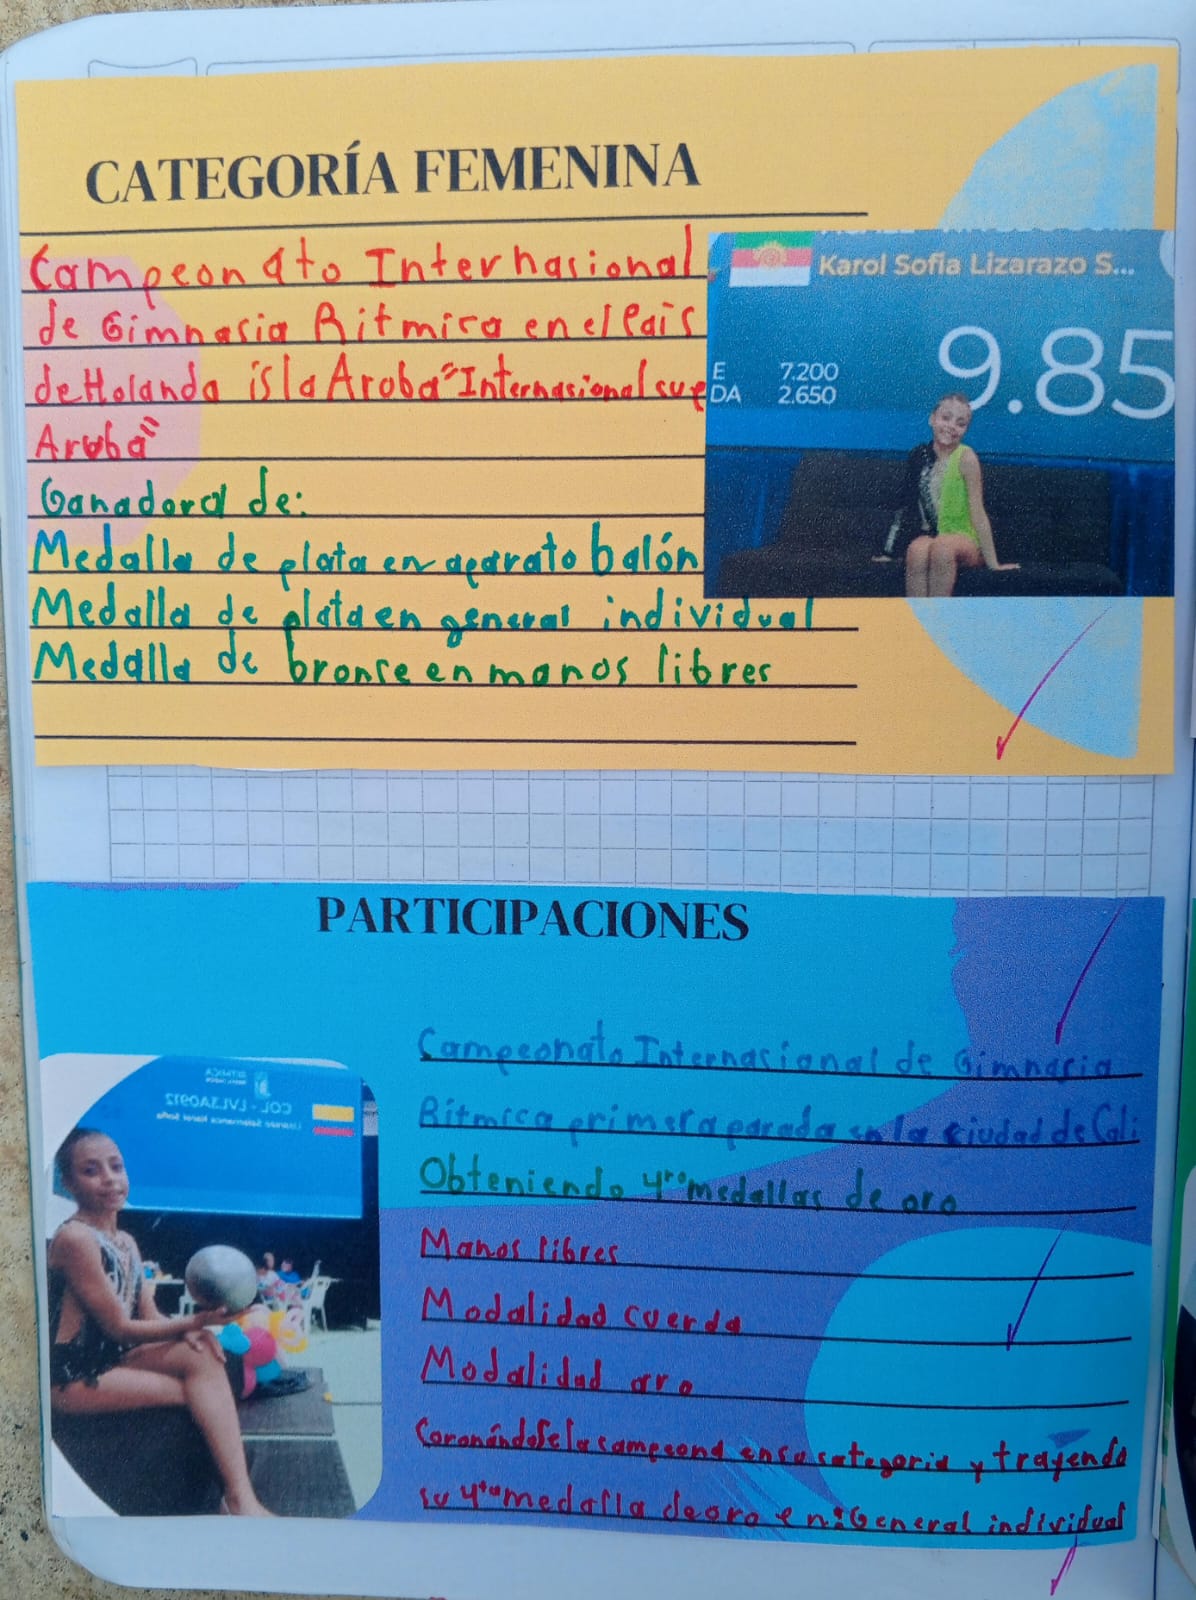 CATEGORÍA FEMENINA
Campeonato Internasional
de Gimnasia Ritmica en el Pais
de Holanda isla Aroba "Internasional cup
Aruba"
Ganadora de:
Medalla de plata en aparato balón
Medalla de plata en general individual
Medalla de bronse en manos libres
Karol Sofia Lizarazo S...
9.85
E 7.200
DA 2.650
PARTICIPACIONES
Campeonato Internasional de Gimnasia
Ritmica primera parada en la ciudad de Cali
Obteniendo 4ro medallas de oro
Manos libres
Modalidad cuerda
Modalidad aro
Coronándose la campeona en su categoria y trayendo
su 4ta medalla de oro en: General individual
COL - LVL3A0912